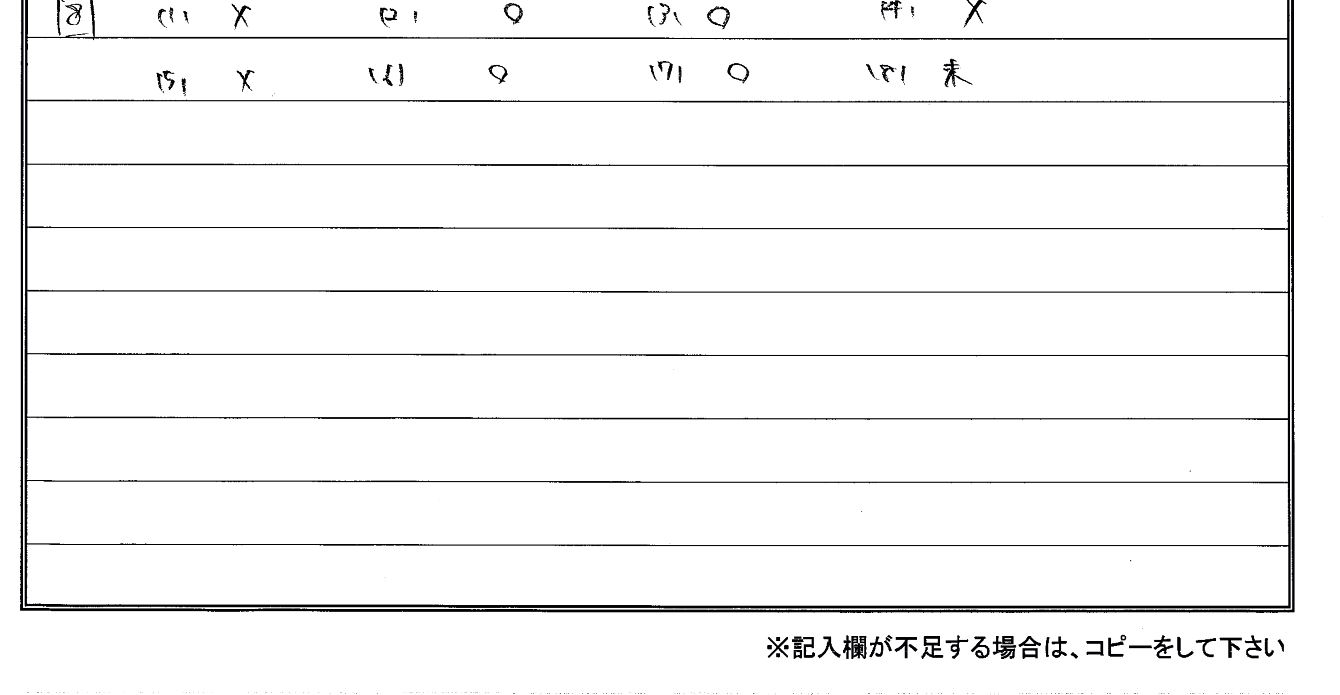 8 (1) × (2) ○ (3) ○ (4) ×
(5) × (6) ○ (7) ○ (8) 未
※記入欄が不足する場合は、コピーをして下さい